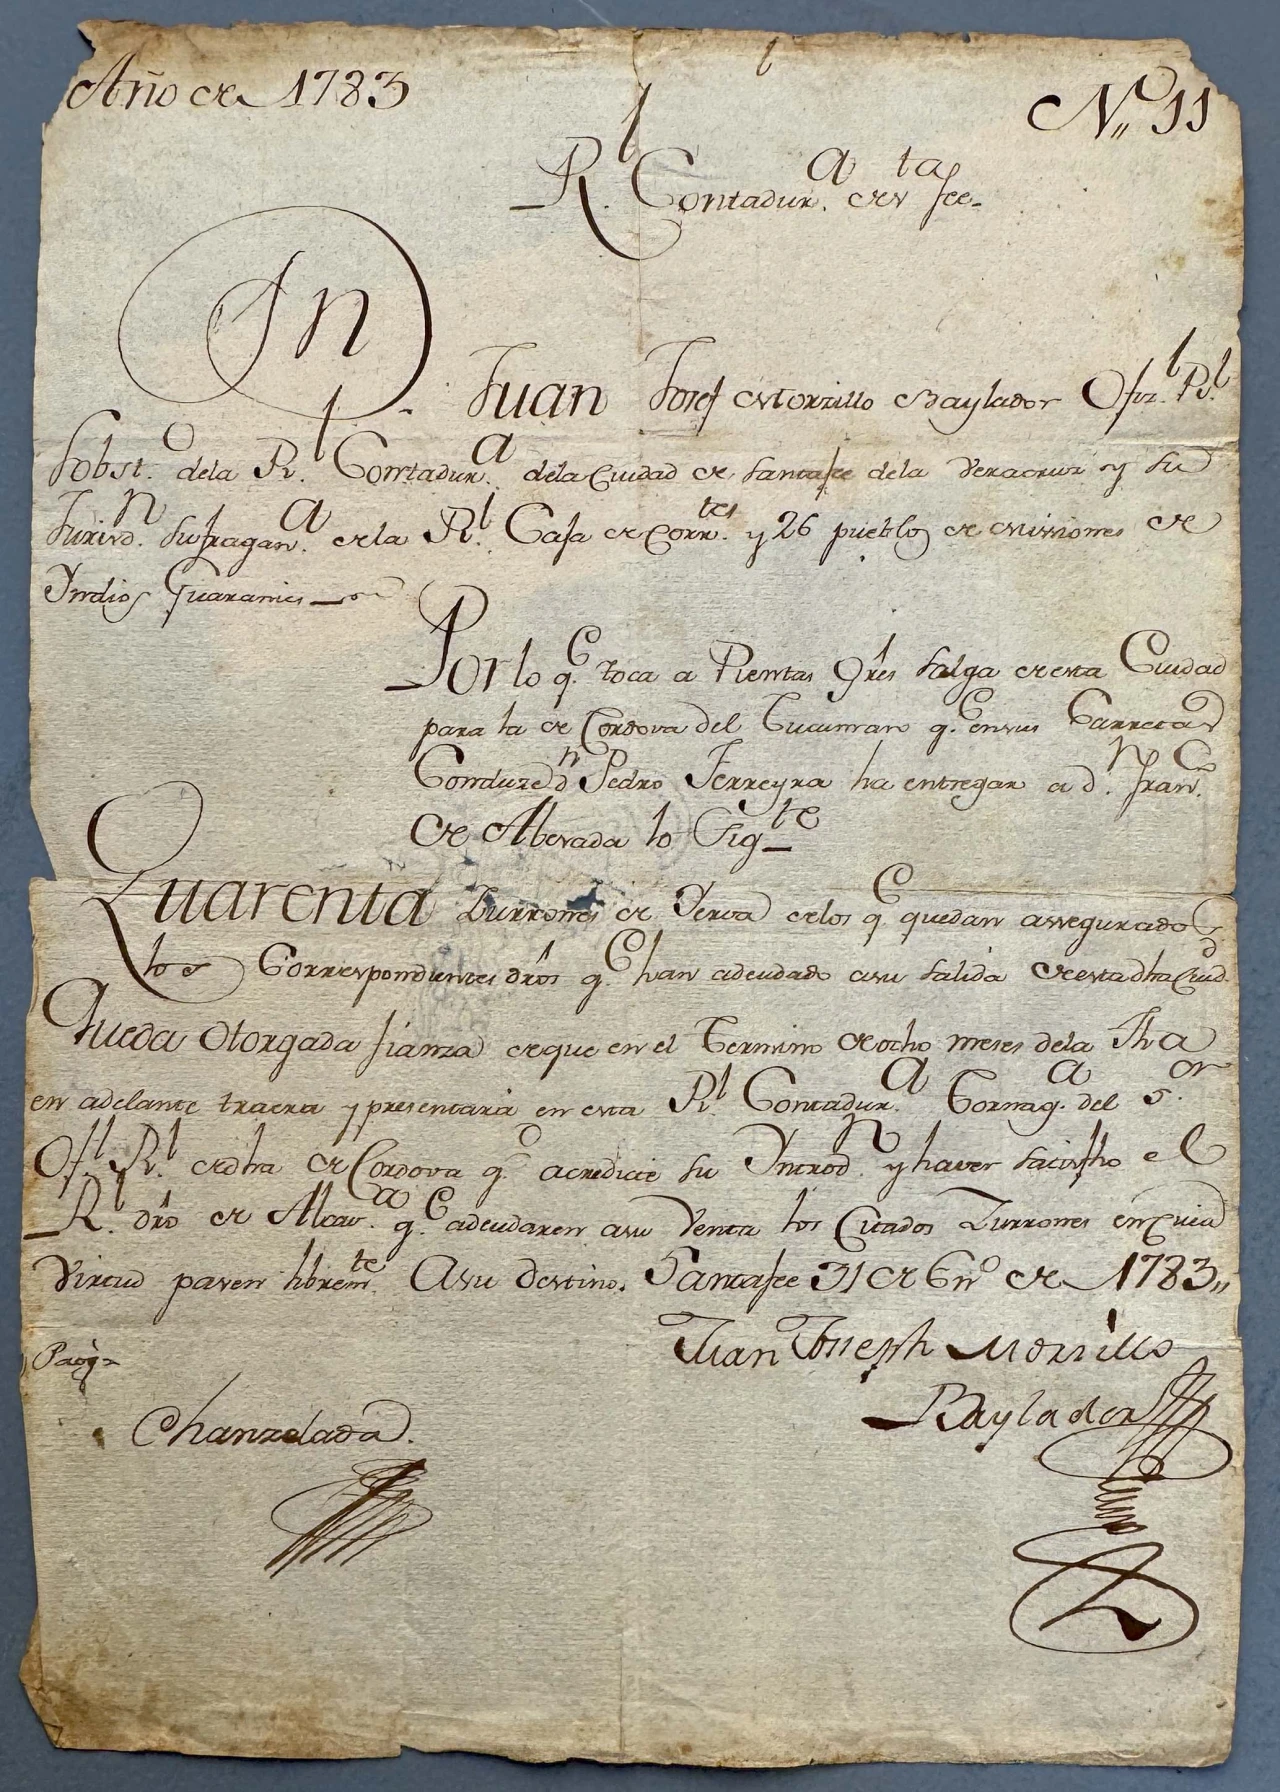 Año de 1783
N,, 11
R.l Contadur.a de S.ta fee
Dn Juan Josef Morzillo Baylador Ofiz.l R.l
Sobst.o dela R.l Contadur.a dela Ciudad de Santafee dela Veracruz y su
Jurisd.n sufragan.a de la R.l Casa de Corr.tes y 26 pueblos de Missiones de
Yndios Guaranies
Por lo q.e toca a Rientas Grles salga de esta Ciudad
para la de Cordova del Tucuman q.e en sus Carretas
Conduze dn Pedro Ferreyra ha entregar a d.n Fran.co
de Alsevada lo sig.te
Quarenta Zurrones de Yerva delos q.e quedan assegurados
los Correspondientes drõs q.e han adeudado asu salida de esta dha Ciud.d
Queda Otorgada fianza deque en el Termino de ocho meses dela fha
en adelante traera y presentara en esta R.l Contadur.a Tornag.a del S.or
Of.l R.l de dha de Cordova q.e acredite su Ynttrod.n y haver satisfho el
R.l dro de Alcav.a q.e adeudaren asu Venta los Citados Zurrones en Cuia
Virtud pasen librem.te Asu destino. Santafee 31 de En.o de 1783,,
Juan Joseph Morzillo
Baylador
Chanzelada.